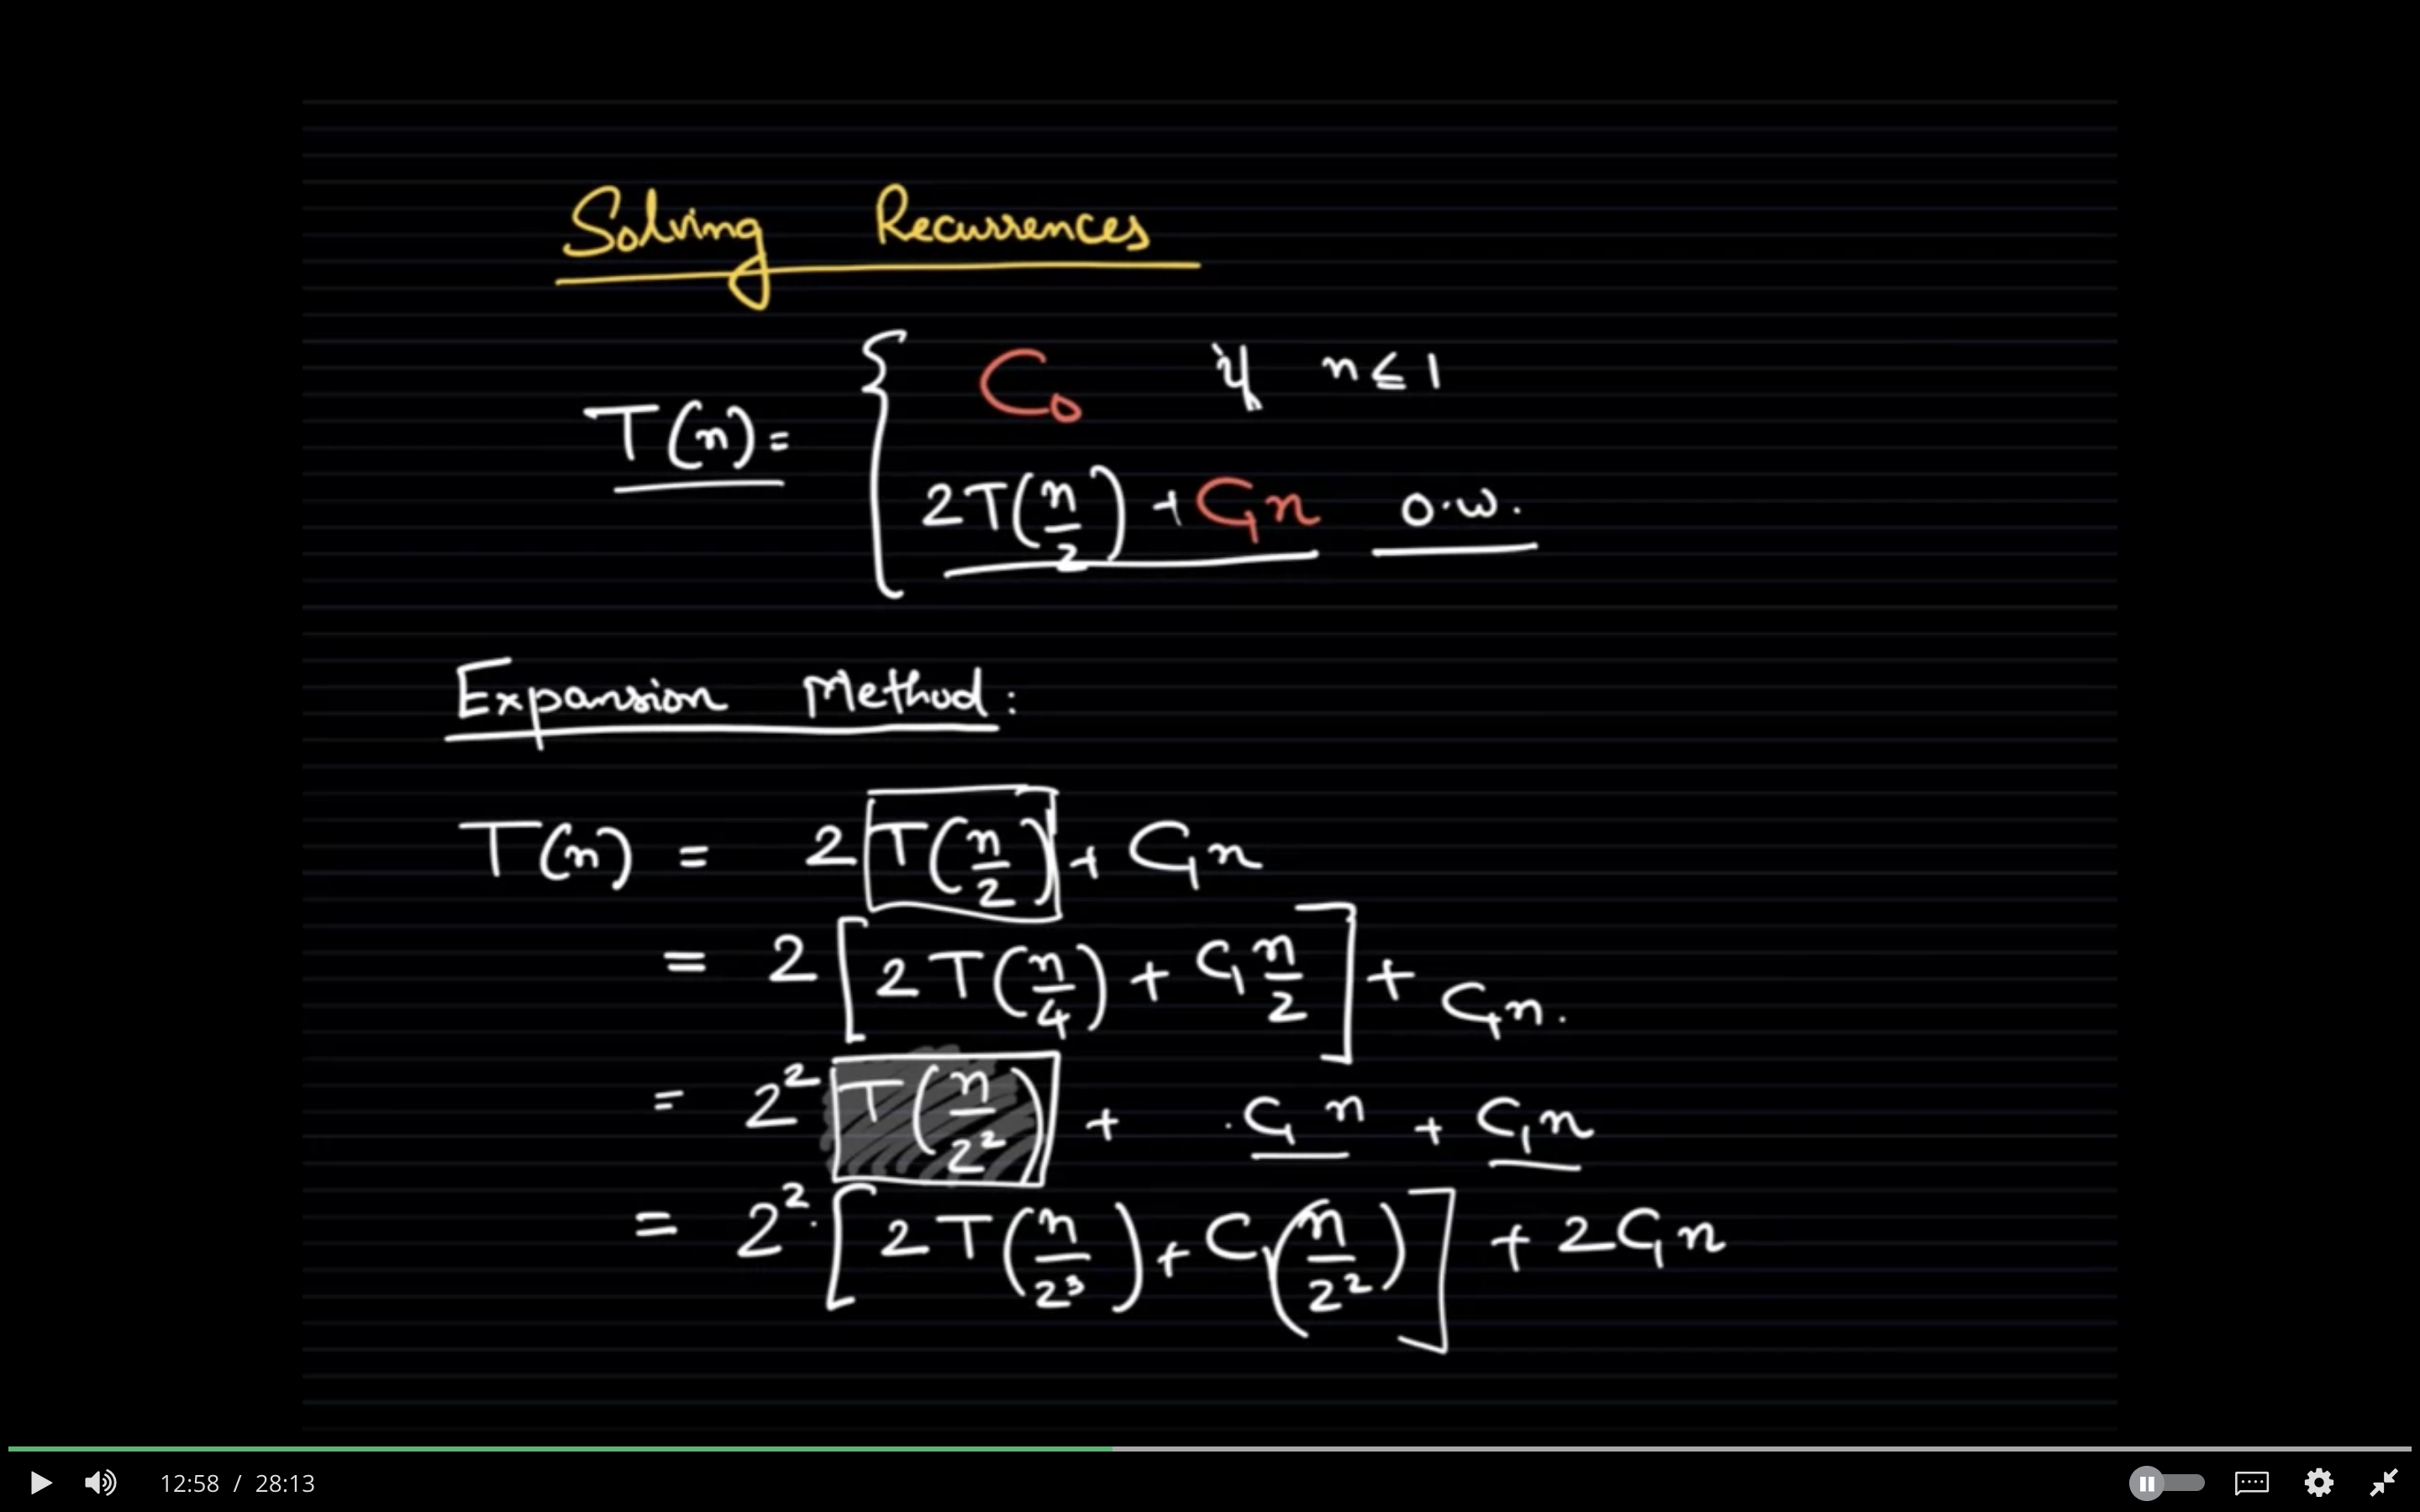 Solving Recurrences
T(n) = { C₀ if n ≤ 1
2T(n/2) + C₁n o.w.
Expansion Method:
T(n) = 2 T(n/2) + C₁n
= 2 [ 2 T(n/4) + C₁ n/2 ] + C₁n.
= 2² T(n/2²) + C₁ n + C₁n
= 2² · [ 2 T(n/2³) + C₁(n/2²) ] + 2C₁n
12:58 / 28:13